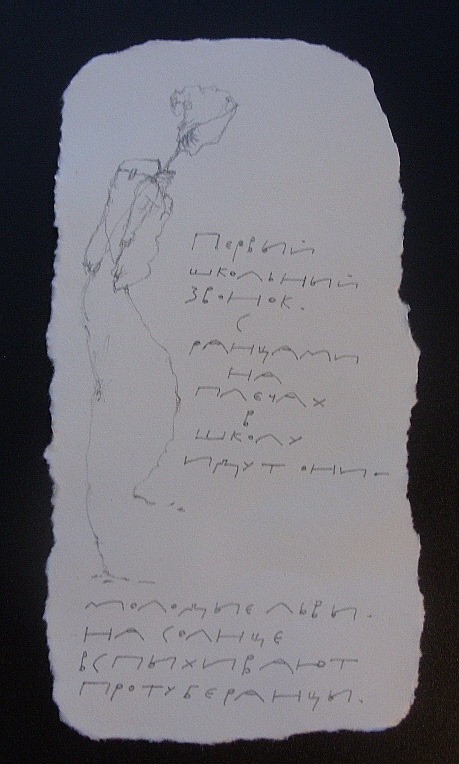 Первый
школьный
звонок.
с
ранцами
на
плечах
в
школу
идут они –
молодые львы.
на солнце
вспыхивают
протуберанцы.